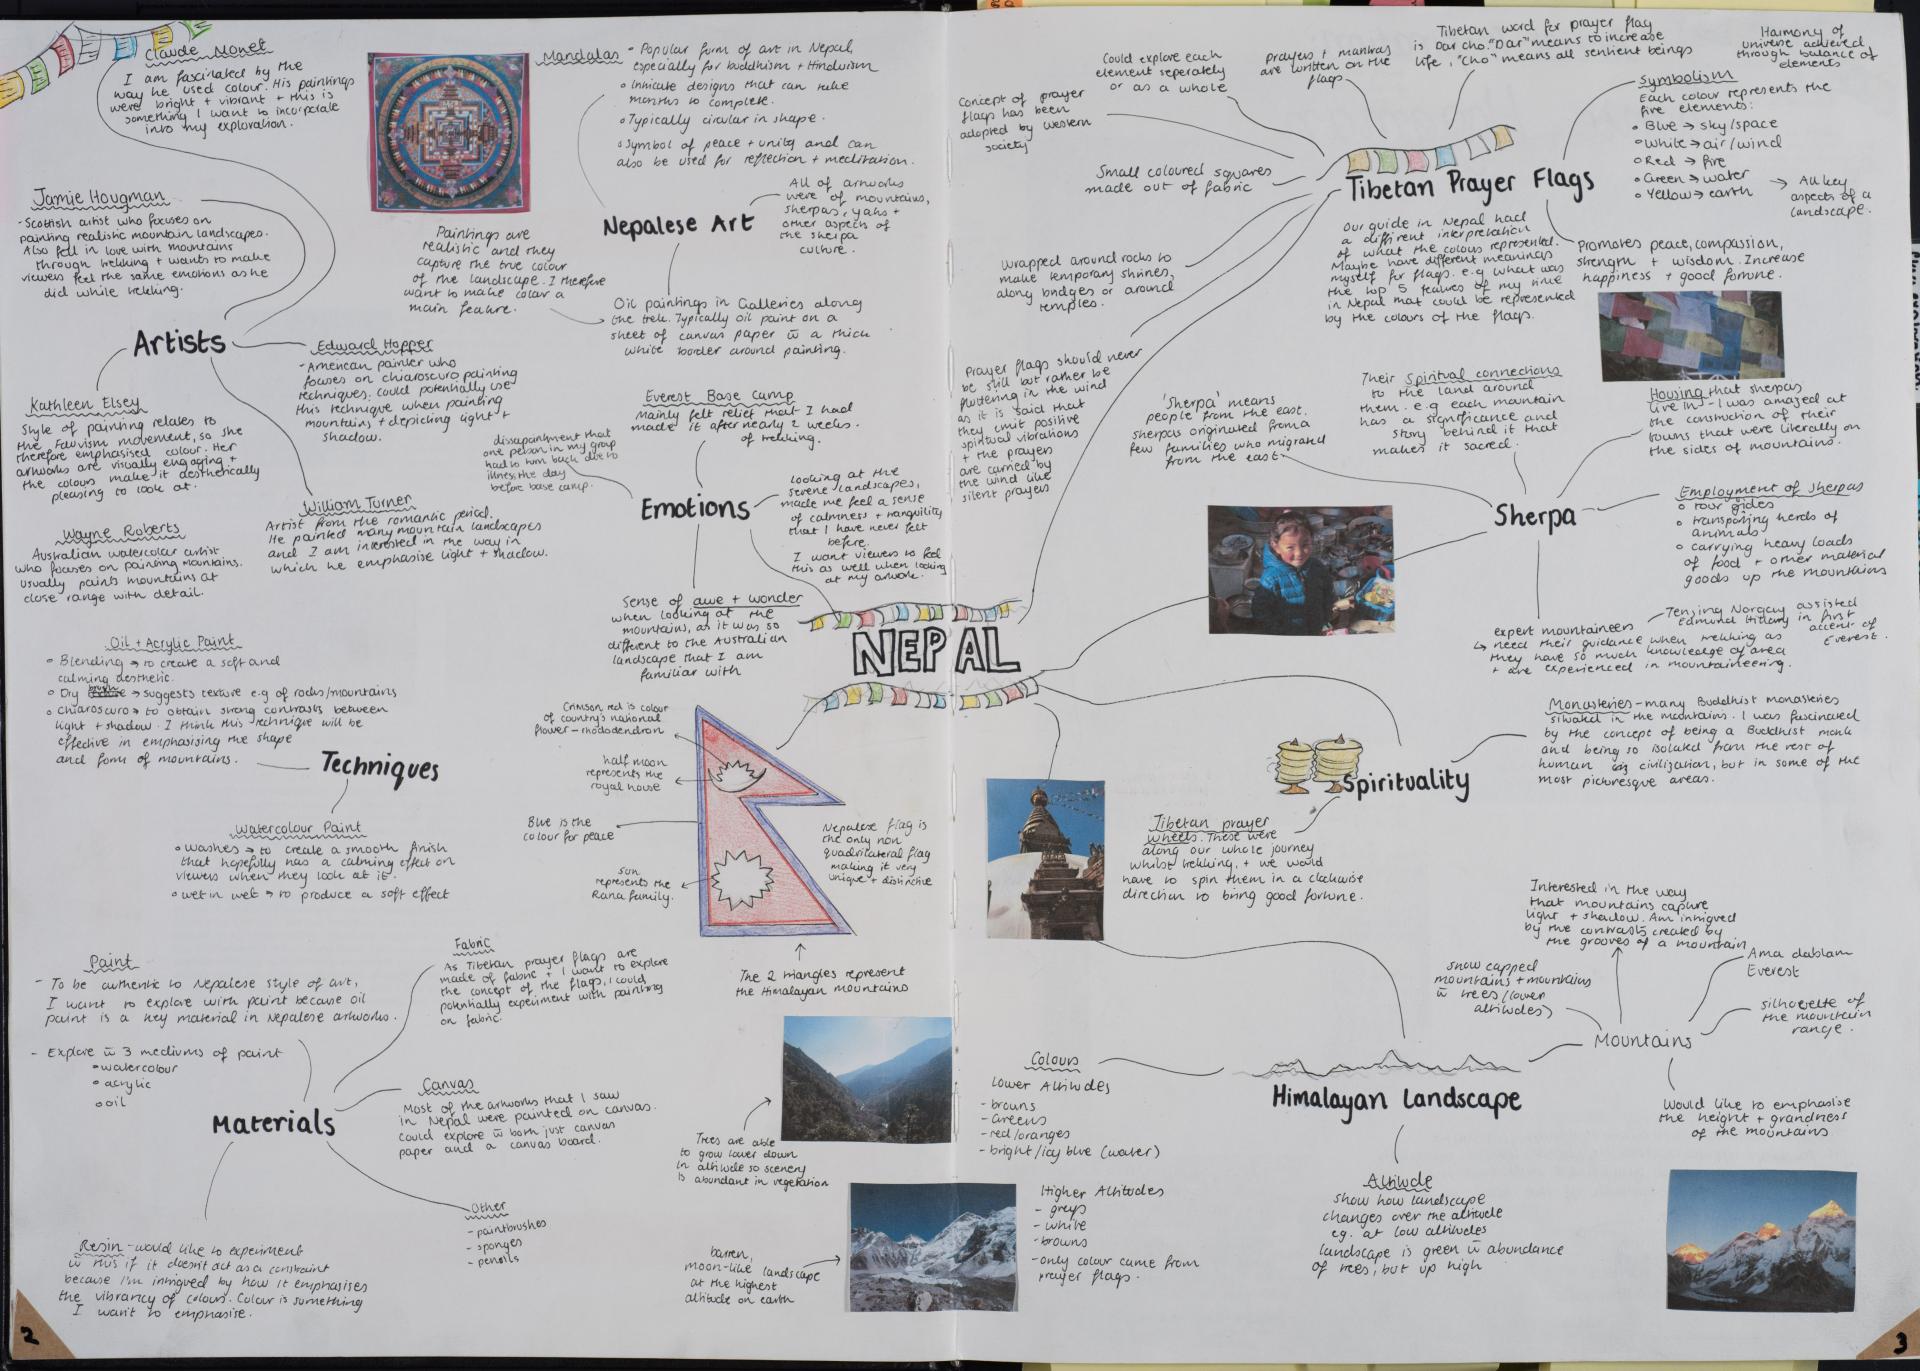 Claude Monet
I am fascinated by the
way he used colour. His paintings
were bright + vibrant + this is
something I want to incorporate
into my exploration.
Mandalas
- Popular form of art in Nepal,
especially for buddhism + Hinduism
Intricate designs that can take
months to complete.
Typically circular in shape.
Symbol of peace + unity and can
also be used for reflection + meditation.
Jamie Hougman
- Scottish artist who focuses on
painting realistic mountain landscapes.
Also fell in love with mountains
through trekking + wants to make
viewers feel the same emotions as he
did while trekking.
Paintings are
realistic and they
capture the true colour
of the landscape. I therefore
want to make colour a
main feature.
Nepalese Art
All of artworks
were of mountains,
sherpas, yaks +
other aspects of
the sherpa
culture.
Oil paintings in Galleries along
the trek. Typically oil paint on a
sheet of canvas paper w a thick
white border around painting.
Artists
Edward Hopper
- American painter who
focuses on chiaroscuro painting
techniques; could potentially use
this technique when painting
mountains + depicting light +
shadow.
Kathleen Elsey
Style of painting relates to
the Fauvism movement, so she
therefore emphasised colour. Her
artworks are visually engaging +
the colours make it aesthetically
pleasing to look at.
William Turner
Artist from the romantic period.
He painted many mountain landscapes
and I am interested in the way in
which he emphasise light + shadow.
Wayne Roberts
Australian watercolour artist
who focuses on painting mountains.
Usually paints mountains at
close range with detail.
Everest Base Camp
Mainly felt relief that I had
made it after nearly 2 weeks
of trekking.
dissapointment that
one person in my group
had to turn back due to
illness the day
before base camp.
Emotions
looking at the
serene landscapes,
made me feel a sense
of calmness + tranquility
that I have never felt
before.
I want viewers to feel
this as well when looking
at my artwork.
Sense of awe + wonder
when looking at the
mountains, as it was so
different to the Australian
landscape that I am
familiar with
Oil + Acrylic Paint
Blending → to create a soft and
calming aesthetic.
Dry brush → suggests texture e.g of rocks/mountains
Chiaroscuro → to obtain strong contrasts between
light + shadow. I think this technique will be
effective in emphasising the shape
and form of mountains.
Techniques
Watercolour Paint
Washes → to create a smooth finish
that hopefully has a calming effect on
viewers when they look at it.
wet in wet → to produce a soft effect
NEPAL
Crimson red is colour
of country's national
flower - rhododendron
half moon
represents the
royal house
Blue is the
colour for peace
sun
represents the
Rana family.
Nepalese flag is
the only non
quadrilateral flag
making it very
unique + distinctive
The 2 triangles represent
the Himalayan mountains
Paint
- To be authentic to Nepalese style of art,
I want to explore with paint because oil
paint is a key material in Nepalese artworks.
- Explore w 3 mediums of paint
watercolour
acrylic
oil
Fabric
As Tibetan prayer flags are
made of fabric + I want to explore
the concept of the flags, I could
potentially experiment with painting
on fabric.
Canvas
Most of the artworks that I saw
in Nepal were painted on canvas.
Could explore w both just canvas
paper and a canvas board.
Materials
Other
- paintbrushes
- sponges
- pencils
Resin - would like to experiment
w this if it doesn't act as a constraint
because I'm intrigued by how it emphasises
the vibrancy of colours. Colour is something
I want to emphasise.
Trees are able
to grow lower down
in altitude so scenery
is abundant in vegetation
barren,
moon-like landscape
at the highest
altitude on earth
2
Could explore each
element seperately
or as a whole
prayers + mantras
are written on the
flags
Tibetan word for prayer flag
is Dar cho. "Dar" means to increase
life, "Cho" means all sentient beings
Harmony of
universe achieved
through balance of
elements
Concept of prayer
flags has been
adopted by western
society
Small coloured squares
made out of fabric
Tibetan Prayer Flags
Symbolism
Each colour represents the
five elements:
Blue → sky/space
White → air/wind
Red → fire
Green → water
Yellow → earth
→ All key
aspects of a
landscape.
Wrapped around rocks to
make temporary shrines,
along bridges or around
temples.
Our guide in Nepal had
a different interpretation
of what the colours represented.
Maybe have different meanings
myself for flags. e.g what was
the top 5 features of my time
in Nepal that could be represented
by the colours of the flags.
Promotes peace, compassion,
strength + wisdom. Increase
happiness + good fortune.
Prayer flags should never
be still but rather be
fluttering in the wind
as it is said that
they emit positive
spiritual vibrations
+ the prayers
are carried by
the wind like
silent prayers
'Sherpa' means
people from the east.
Sherpas originated from a
few families who migrated
from the east.
Their spiritual connections
to the land around
them. e.g each mountain
has a significance and
story behind it that
makes it sacred.
Housing that sherpas
live in - I was amazed at
the construction of their
towns that were literally on
the sides of mountains.
Sherpa
Employment of Sherpas
tour gides
transporting herds of
animals
carrying heavy loads
of food + other material
goods up the mountains
expert mountaineers
↳ need their guidance when trekking as
they have so much knowledge of area
+ are experienced in mountaineering.
Tenzing Norgay assisted
Edmund Hillary in first
accent of
Everest.
Monasteries - many Buddhist monasteries
situated in the mountains. I was fascinated
by the concept of being a Buddhist monk
and being so isolated from the rest of
human civilization, but in some of the
most picturesque areas.
Spirituality
Tibetan prayer
wheels. These were
along our whole journey
whilst trekking, + we would
have to spin them in a clockwise
direction to bring good fortune.
Interested in the way
that mountains capture
light + shadow. Am intrigued
by the contrasts created by
the grooves of a mountain
snow capped
mountains + mountains
w trees (lower
altitudes)
Ama dablam
Everest
silhouette of
the mountain
range.
Mountains
Would like to emphasise
the height + grandness
of the mountains
Himalayan Landscape
Colours
Lower Altitudes
- browns
- Greens
- red/oranges
- bright/icy blue (water)
Higher Altitudes
- greys
- white
- browns
- only colour came from
prayer flags.
Altitude
Show how landscape
changes over the altitude
eg. at low altitudes
landscape is green w abundance
of trees, but up high
3